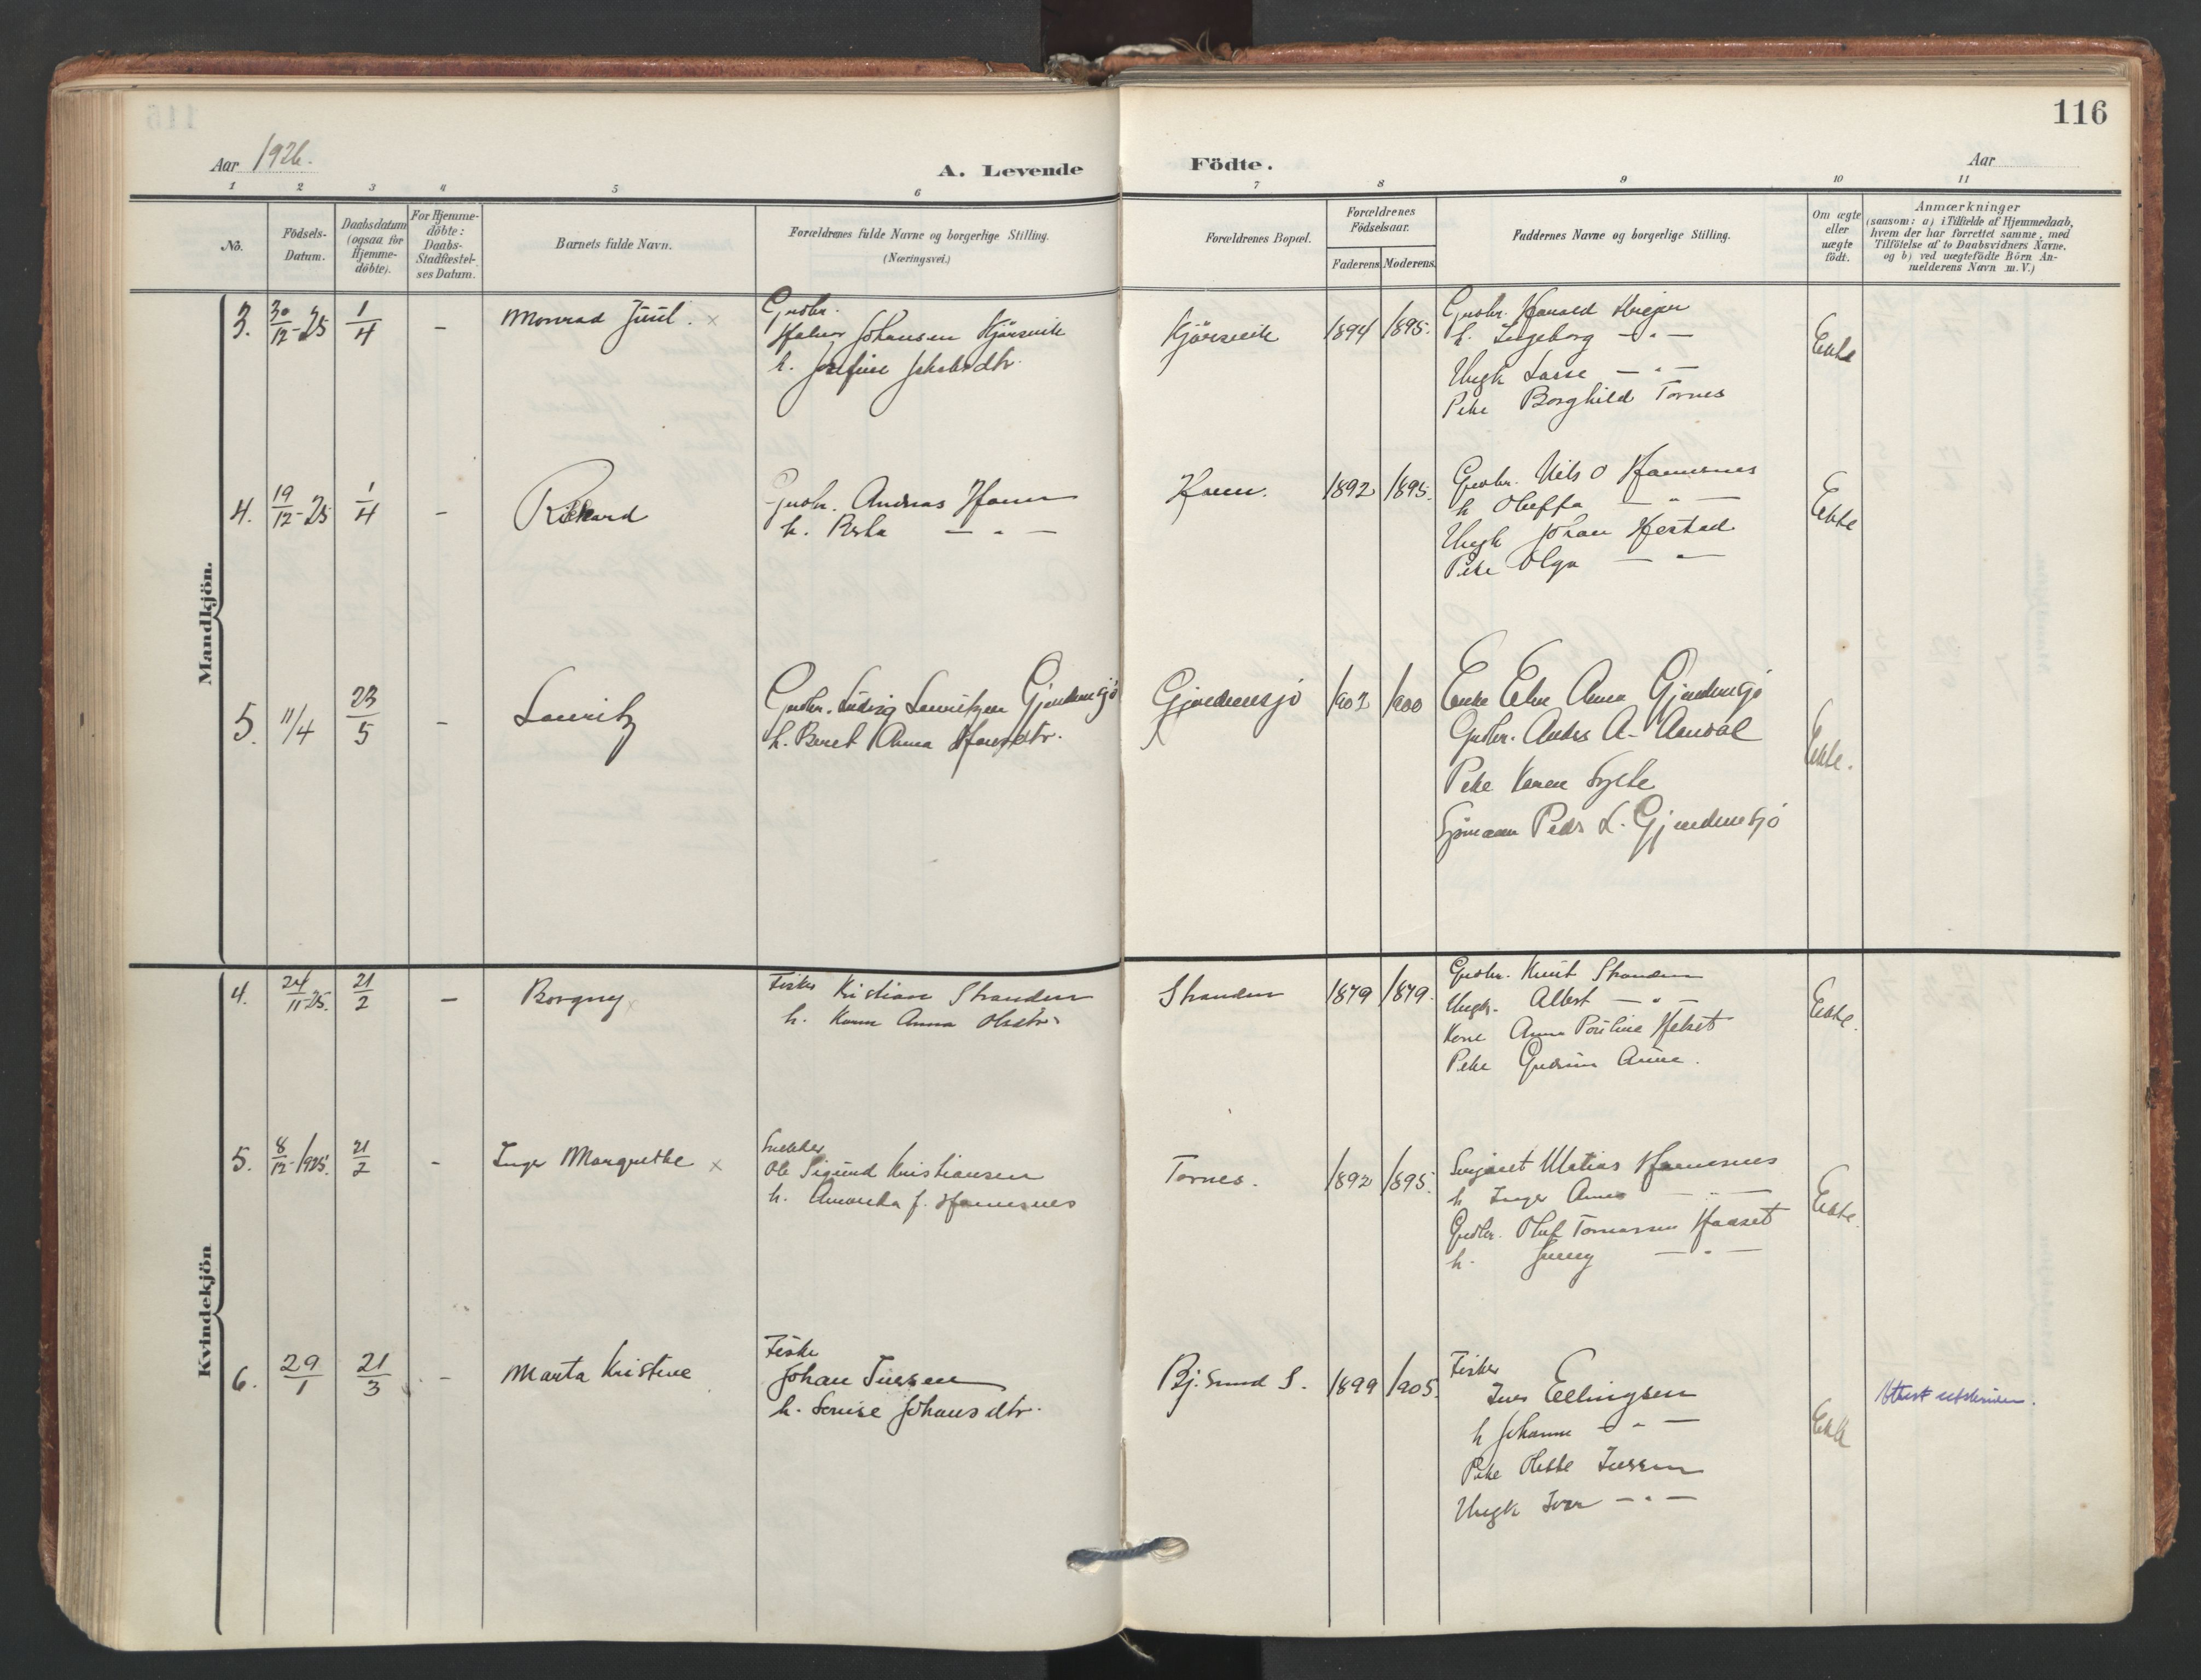 116
Aar 1926.
A. Levende Födte.
Aar
1 2 3 4 5 6 7 8 9 10 11
No.
Födsels-
Datum.
Daabsdatum
(ogsaa for
Hjemme-
döbte).
For Hjemme-
döbte:
Daabs-
Stadfæstel-
ses Datum.
Barnets fulde Navn.
Forældrenes fulde Navne og borgerlige Stilling.
(Næringsvei.)
Forældrenes Bopæl.
Forældrenes
Födselsaar.
Faderens Moderens
Faddernes Navne og borgerlige Stilling.
Om ægte
eller
uægte
födt.
Anmærkninger
(saasom: a) i Tilfælde af Hjemmedaab,
hvem der har forrettet samme, med
Tilföielse af to Daabsvidners Navne.
og b) ved uægtefödte Börn An-
melderens Navn m. V.)
Mandkjön.
3. 30/12-25 1/4 – Monrad Juul. x
Gmbr.
Johansen Kjörsvik
h. Josefine Jakobsdtr.
Kjörsvik 1894 1895.
Gmbr. Harald
h. Ingeborg – " –
Ungk Lasse – " –
Pike Borghild Tornes
Ekte
4. 19/12-25 1/4 – Rikard
Gmbr. Andreas Ham
h. Berta – " –
Ham. 1892 1895.
Gmbr. Nils O Hammesnes
h Oluffa – " –
Ungk Johan Herstad
Pike Olga – " –
Ekte
5. 11/4 23/5 – Lauritz
Gmbr. Ludvig Lauritzen Gjendemsjö
h. Beret Anna Hansdtr.
Gjendemsjö 1902 1900
Enke Elen Anna Gjendemsjö
Gmbr. Anders A. Aandal
Pike Karen Sylte
Sjömann Peder L. Gjendemsjö
Ekte.
Kvindekjön
4. 24/11-25. 21/2 – Borgny x
Fisker Kristian Stranden
h. Karen Anna Olsdtr.
Stranden 1879 1879.
Gmbr. Knut Stranden
Ungk. Albert – " –
Kone Anna Pouline
Pike Gudrun
Ekte.
5. 8/12-1925. 21/2 – Inger Margrethe x
Snekker
Ole Sigurd Kristiansen
h. Amanda f. Hammesnes
Tornes. 1892 1895.
Sersjant Matias Hammesnes
h. Inger Anna – " –
Gmbr. Oluf Tomassen Haaset
h. Jenny – " –
Ekte.
6. 29/1 21/3 – Marta Kristine
Fisker
Johan Iversen
h. Lovise Johansdtr.
Bj.sund S. 1899 1905.
Fisker
Iver Ellingsen
h Johanne – " –
Pike Olette Iversen
Ungk Iver – " –
Ekte
Attest utskriven.